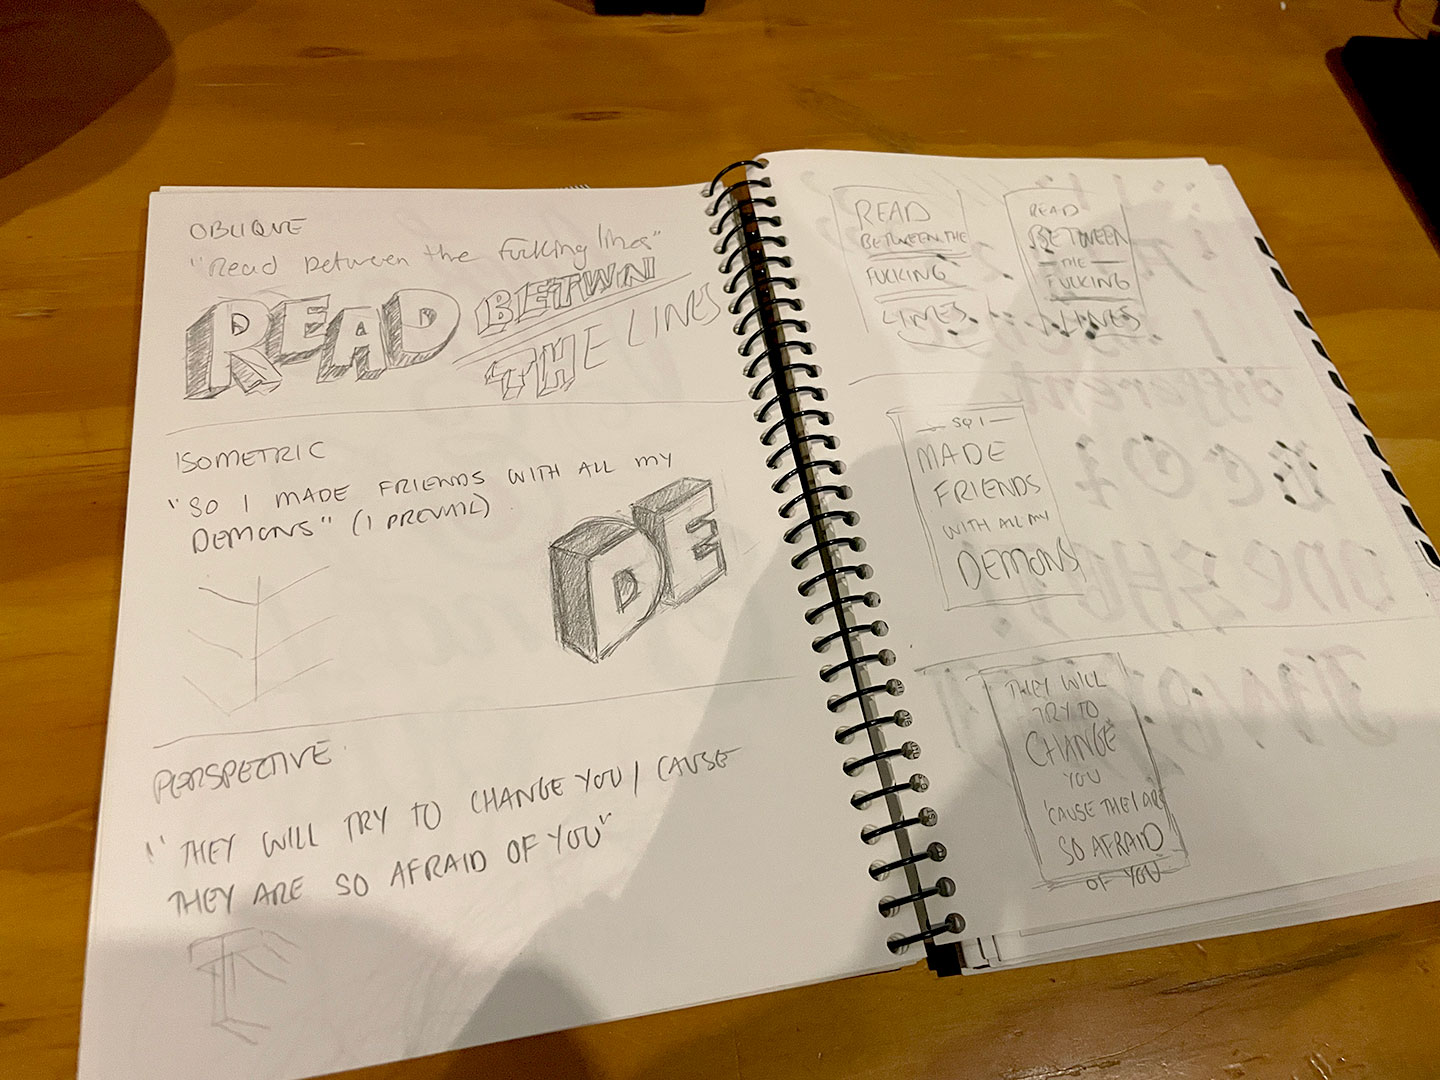 OBLIQUE
"Read between the fucking lines"
READ BETWN
THE LINES
ISOMETRIC
"SO I MADE FRIENDS WITH ALL MY
DEMONS" (I PREVAIL)
DE
PERSPECTIVE
"THEY WILL TRY TO CHANGE YOU / CAUSE
THEY ARE SO AFRAID OF YOU"
READ
BETWEEN THE
FUCKING
LINES
READ
BETWEEN
THE
FUCKING
LINES
SO I
MADE
FRIENDS
WITH ALL MY
DEMONS
THEY WILL
TRY TO
CHANGE
YOU
'CAUSE THEY ARE
SO AFRAID
OF YOU